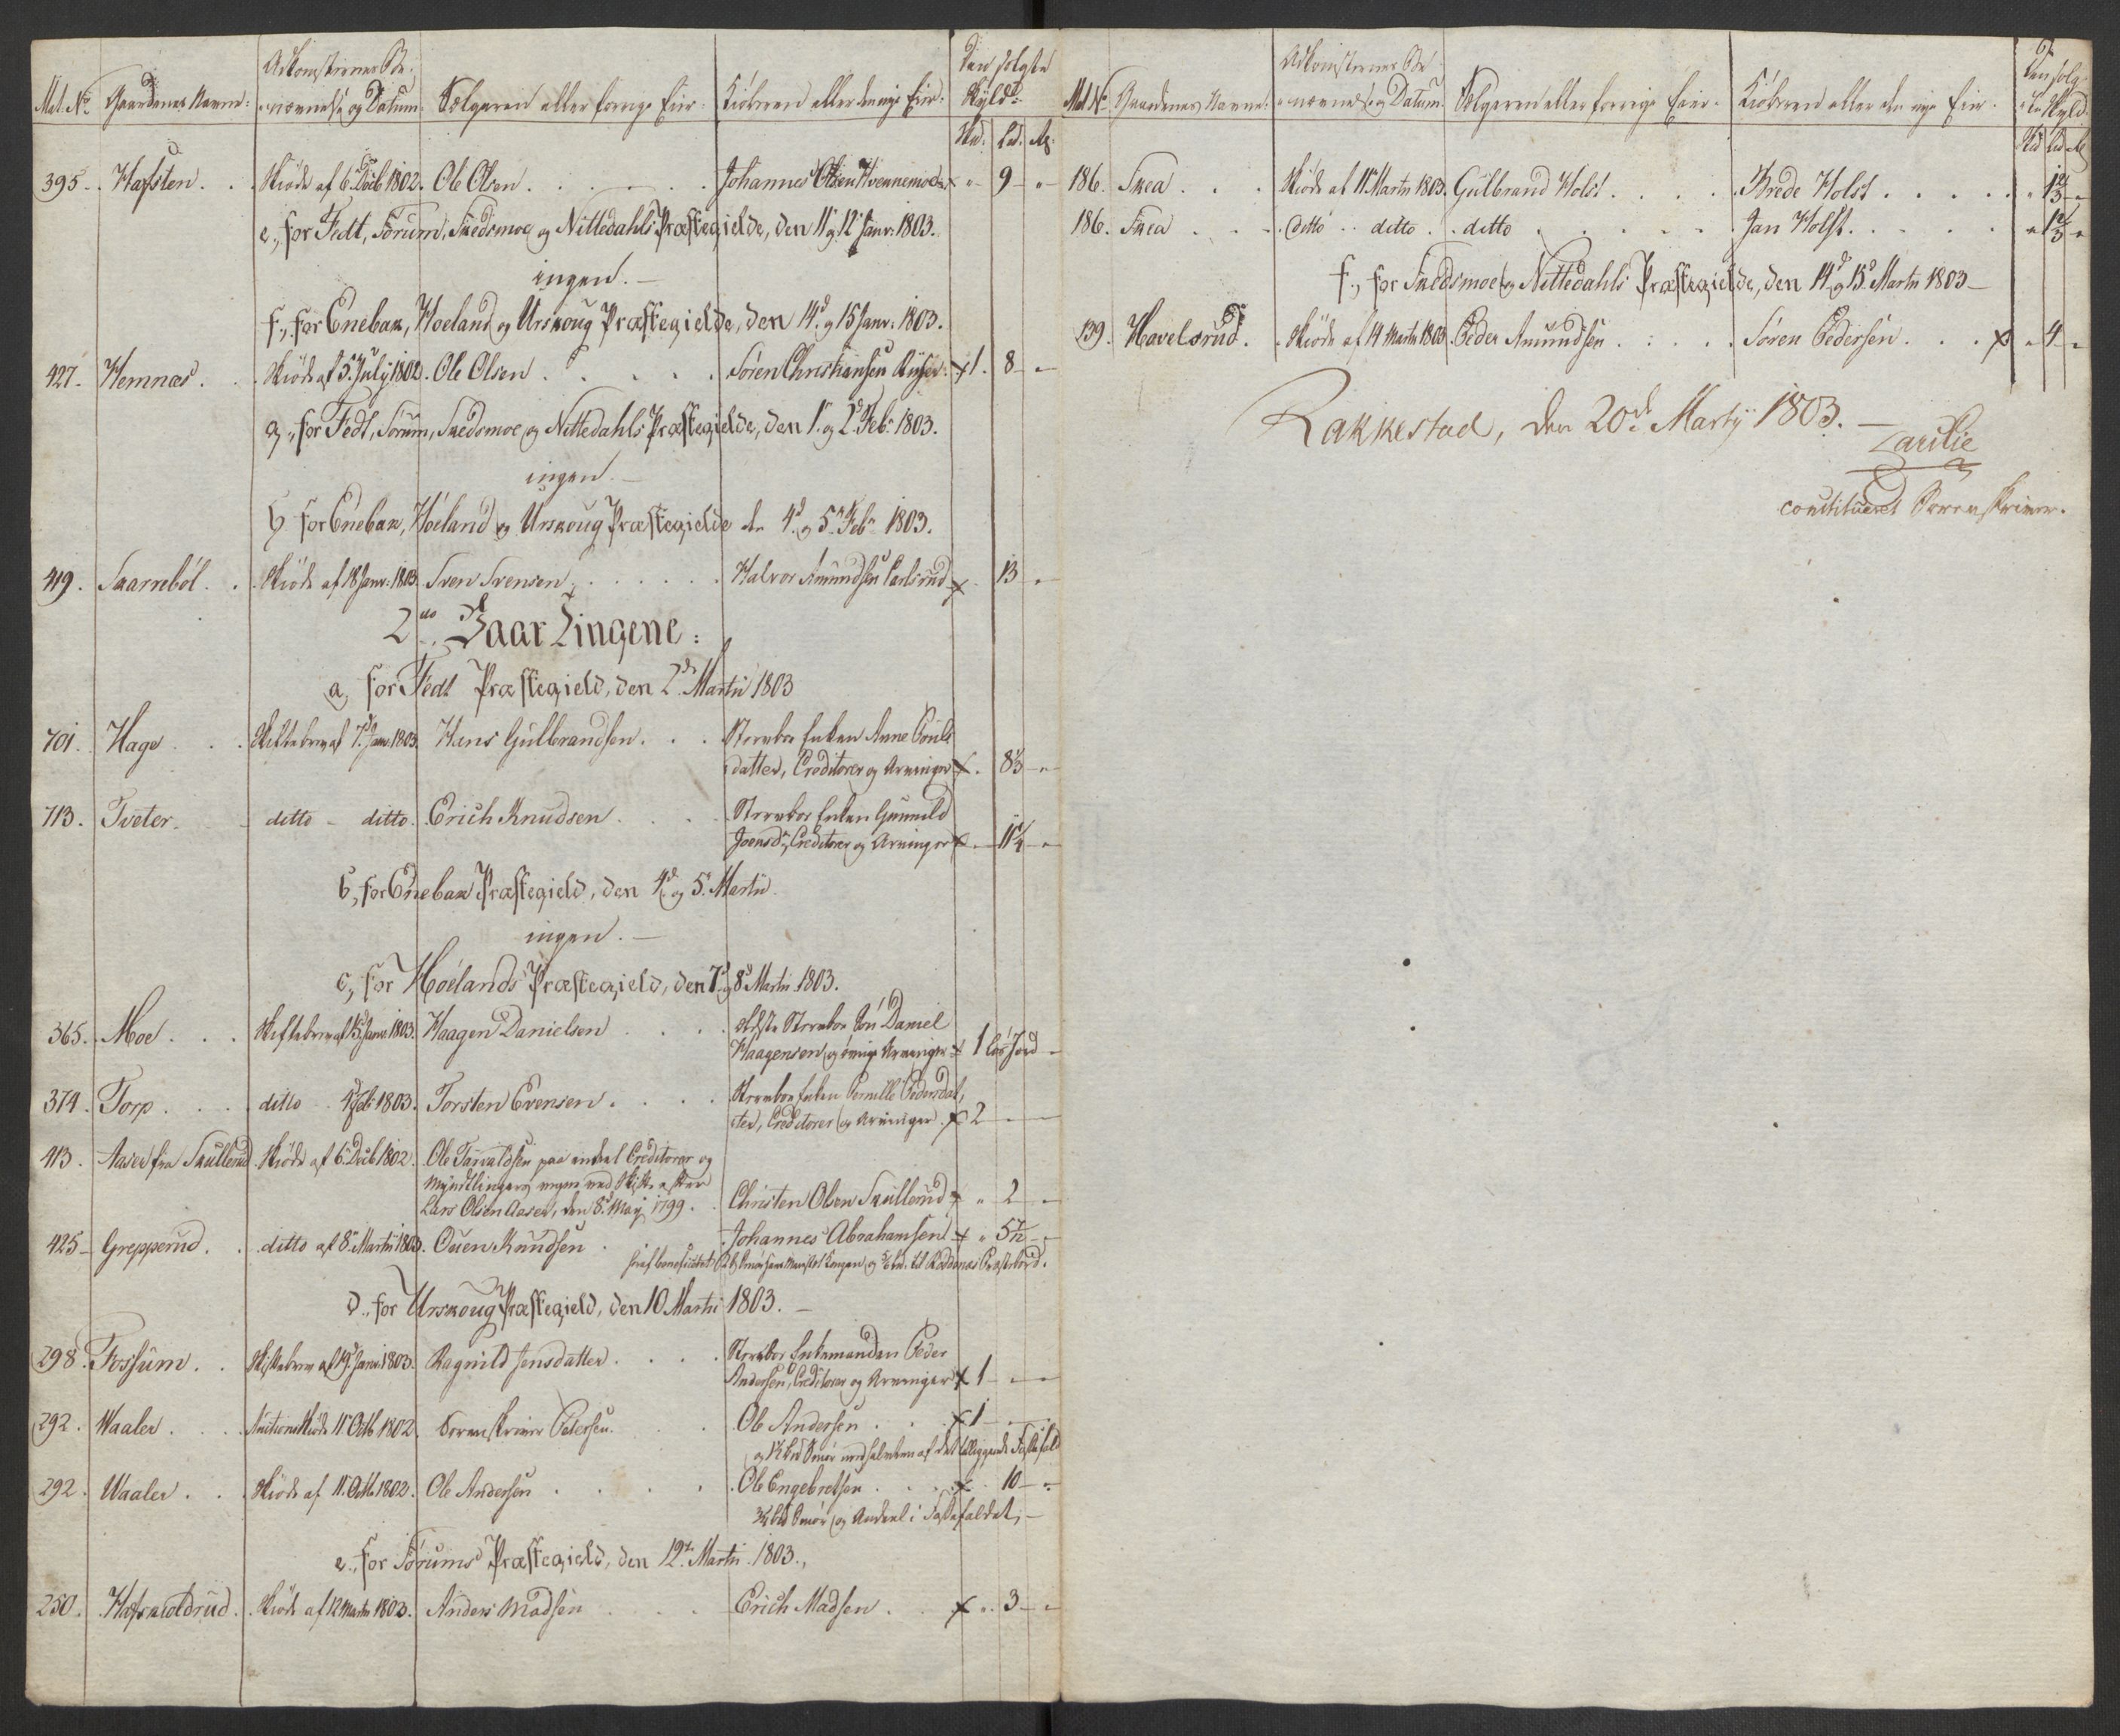 Mat. No. Gaardenes Navne: Adkomsternes Be-
nævnelse og Datum. Sælgeren eller forrige Eier: Kiøberen eller den nye Eier: Den solgte
Skyld:
Skd: Ld: Mk:
395. Hafsten. Skiøde af 6 Decb 1802. Ole Olsen. Johannes Olsen x " 9 "
e, for Fedt, Sørum, Skedsmoe og Nittedahls Præstegielde, den 11 og 12 Janr: 1803.
ingen. —
f, for Enebak, Høeland og Urskoug Præstegielde, den 14d og 15 Janr: 1803.
427. Hemnæs. Skiøde af 5 July 1802. Ole Olsen. Søren Christiansen x 1. 8 "
g, for Fedt, Sørum, Skedsmoe og Nittedahls Præstegielde, den 1. og 2d Feb. 1803.
ingen. —
h, for Enebak, Høeland og Urskoug Præstegielde de 4d og 5 Feb. 1803.
419. Skarrebøl. Skiøde af 18 Janr. 1803. Sven Svensen. Halvor Amundsen x 13 "
2do Vaar Tingene:
a, for Fedt Præstegield, den 2d Martii 1803
701. Hage. Skiftebrev af 7 Janr. 1803. Hans Gulbrandsen. Sterboe Enken Anne Pouls
datter, Creditorer og Arvinger x. 8⅓ "
713. Tveter. ditto - ditto. Erich Knudsen. Sterboe Enken Gunnild
Joensdr, Creditorer og Arvinger x 11¼ "
b, for Enebak Præstegield, den 4d og 5. Martii.
ingen. —
c, for Høelands Præstegield, den 7 og 8d Martii 1803.
365. Moe. Skiftebrev af 15 Janr. 1803. Haagen Danielsen. Ældste Sterboe Søn Daniel
Haagensen og øvrige Arvinger x 1 løs Jord
374. Torp. ditto 4 Feb. 1803. Torsten Evensen. Sterboe Enken Pernille Pedersdat,
ter, Creditorer og Arvinger. x 2
413. Aaser fra Skullerud. Skiøde af 6 Decb 1802. Ole Tarraldsen paa endeel Creditorer og
Myndtlingers vegne ved Skifte efter
Lars Olsen Aaser, den 8d May 1799. Christen Olsen Skullerud x " 2 "
425. Grepperud. ditto af 8 Martii 1803. Ouen Knudsen. Johannes Abrahamsen x " 5½
til Røddenæs Præstebord.
d, for Urskoug Præstegield, den 10 Martii 1803. —
298. Fossum. Skiftebrev af 19 Janr. 1803. Ragnild Jensdatter. Sterboe Enkemanden Peder
Andersen, Creditorer og Arvinger x 1
292. Waaler. Auctions Skiøde 11 Octb 1802. Sorenskriver Petersen. Ole Andersen. x 1
og 1½ bd Smør med halvdelen af det tilliggende
292. Waaler. Skiøde af 11 Octb 1802. Ole Andersen. Ole Engebretsen. x. 10 "
¾ bd Smør og Andeel i
e, for Sørums Præstegield, den 12te Martii 1803.,
250. Hafskoldrud. Skiøde af 12 Martii 1803. Anders Madsen. Erich Madsen. x ". 3 "
Mat. No. Gaardenes Navne: Adkomsternes Be-
nævnelse og Datum. Sælgeren eller forrige Eier. Kiøberen eller den nye Eier. Den solg-
te Skyld:
Skd Ld Mk
186. Skea. Skiøde af 11 Martii 1803. Gulbrand Holst. Brede Holst. " 1⅔
186. Skea. ditto ditto. ditto. Jan Holst. " 1⅔ "
f, for Skedsmoe og Nittedahls Præstegielde, den 14d og 15d Martii 1803 —
139. Havelsrud. Skiøde af 14 Martii 1803. Peder Amundsen. Søren Pedersen. x " 4 "
Rakkestad, den 20de Martij 1803. —
constitueret Sorenskriver.